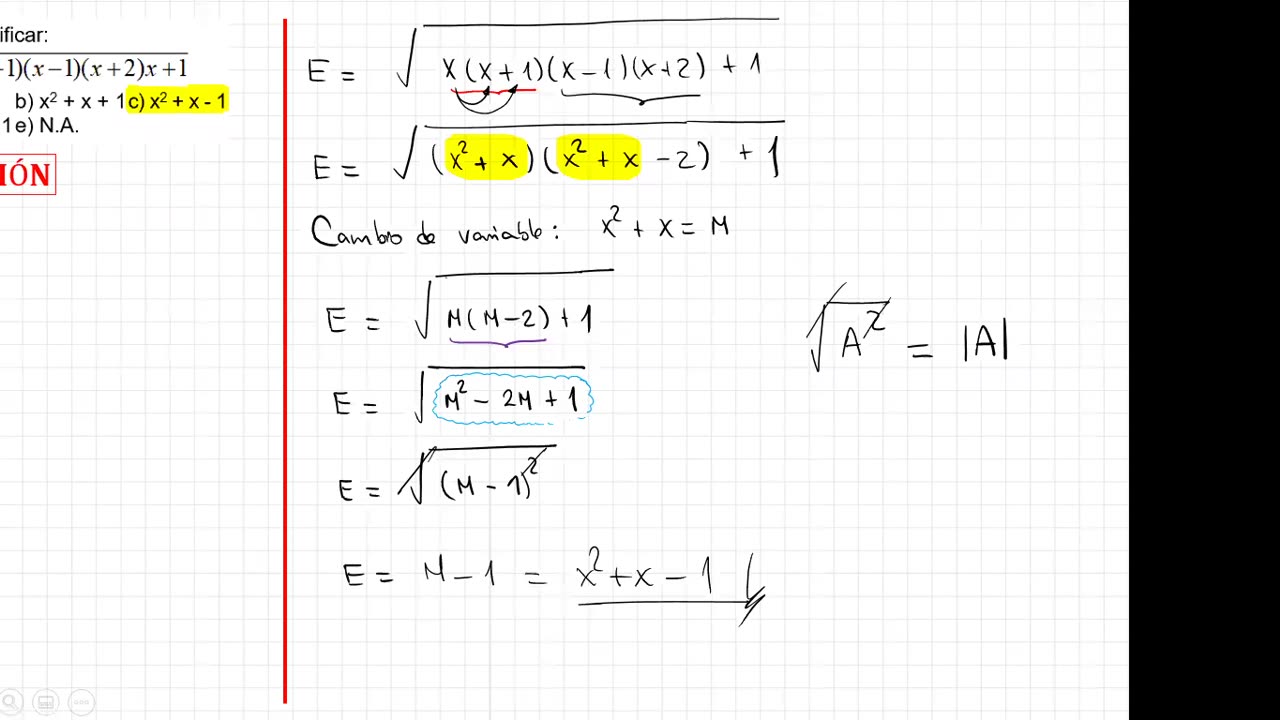 ificar:
-1)(x−1)(x+2)x+1
b) x² + x + 1 c) x² + x - 1
1 e) N.A.
IÓN
E = √(x(x+1)(x−1)(x+2) + 1)
E = √((x² + x)(x² + x − 2) + 1)
Cambio de variable: x² + x = M
E = √(M(M−2) + 1)
√A² = |A|
E = √(M² − 2M + 1)
E = √(M − 1)²
E = M − 1 = x² + x − 1